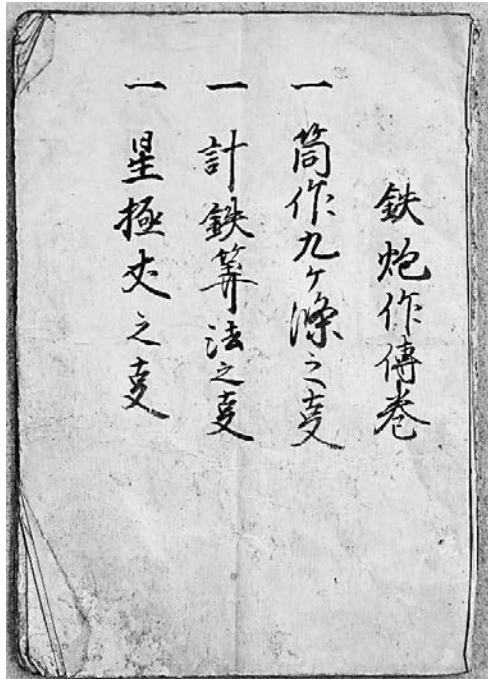 鉄炮作傳巻
一 筒作九ヶ條之㕝
一 計鉄筭法之㕝
一 星極丈之㕝